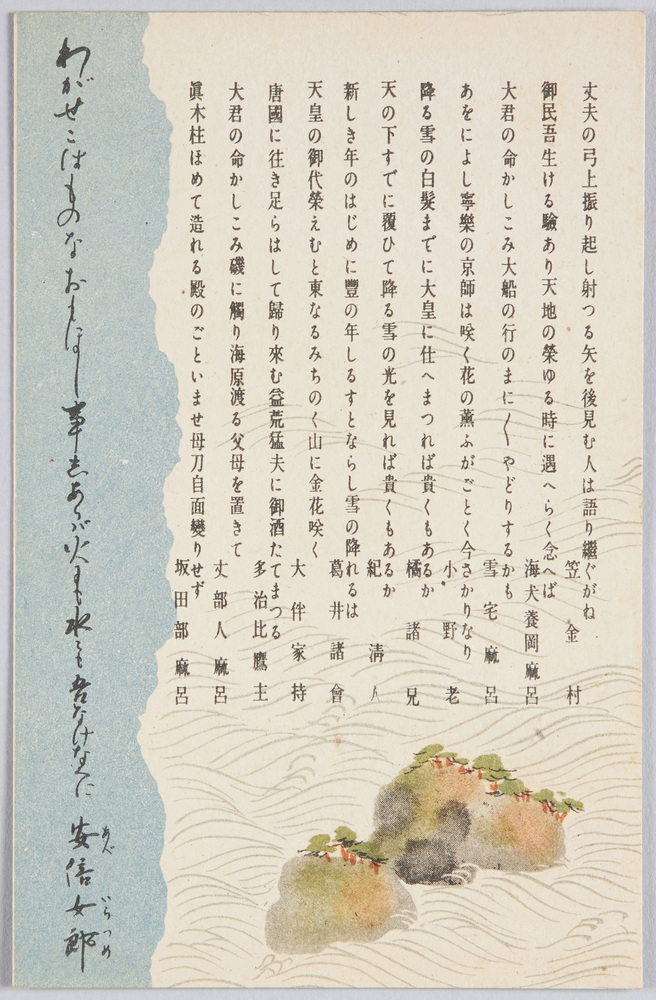 丈夫の弓上振り起し射つる矢を後見む人は語り繼ぐがね
笠金村
御民吾生ける驗あり天地の榮ゆる時に遇へらく念へば
海犬養岡麻呂
大君の命かしこみ大船の行のまに〱やどりするかも
雪宅麻呂
あをによし寧樂の京師は咲く花の薫ふがごとく今さかりなり
小野老
降る雪の白髮までに大皇に仕へまつれば貴くもあるか
橘諸兄
天の下すでに覆ひて降る雪の光を見れば貴くもあるか
紀清人
新しき年のはじめに豐の年しるすとならし雪の降れるは
葛井諸會
天皇の御代榮えむと東なるみちのく山に金花咲く
大伴家持
唐國に往き足らはして歸り來む益荒猛夫に御酒たてまつる
多治比鷹主
大君の命かしこみ磯に觸り海原渡る父母を置きて
丈部人麻呂
眞木柱ほめて造れる殿のごといませ母刀自面變りせず
坂田部麻呂
わがせこはものなおもほし事しあらば火にも水にも吾なけなくに
安倍女郎
あべ いらつめ